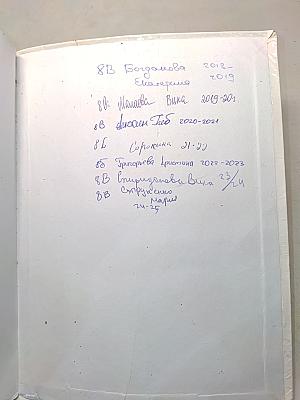 8В Богданова 2018-
Екатерина 2019
8В Вика 2019-20г
8В Глеб 2020-2021
8Б Сорокина 21-22
8Б Григорьева 2022-2023
8В Спиридонова Вика 23/24
8В Струченко
Мария
24-25